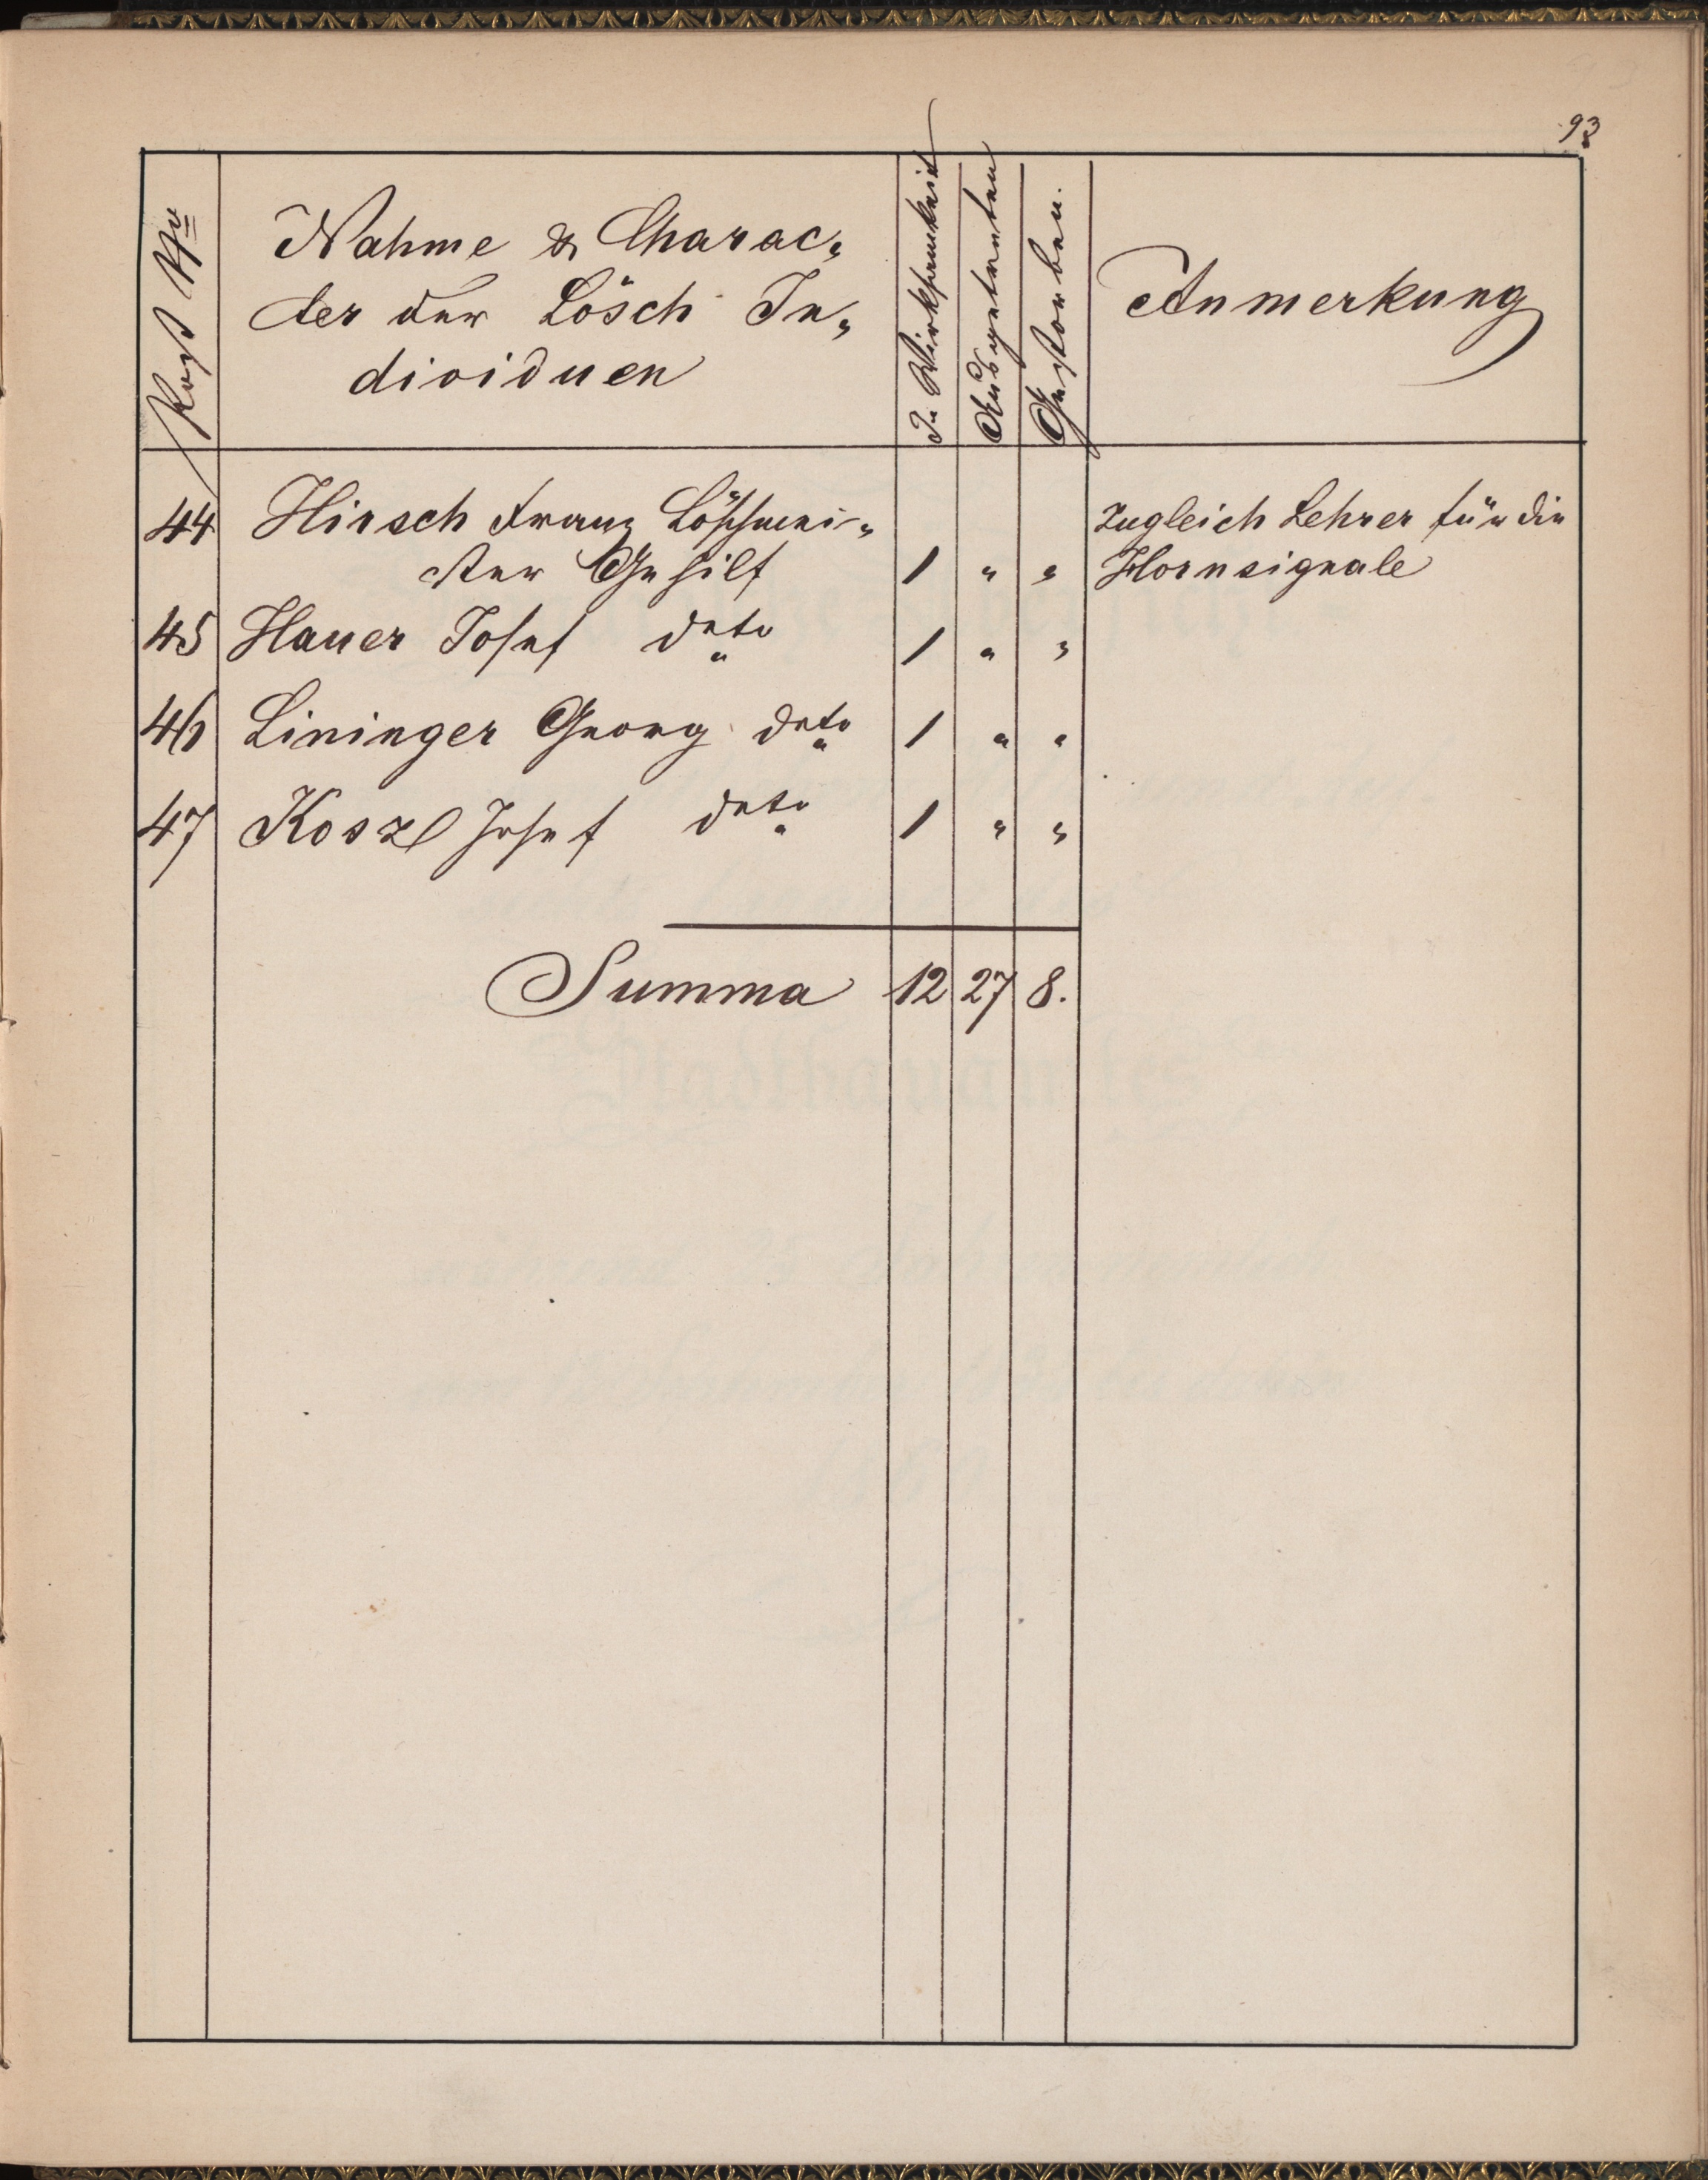 93
Post No
Nahme & Charac„
ter der Lösch In„
dividuen
In Wirksamkeit
Ausgetreten
Gestorben.
Anmerkung
44 Hirsch Franz Löschmei„ Zugleich Lehrer für die
ster Gehilf 1 „ „ Hornsignale
45 Hauer Josef deto 1 „ „
46 Lininger Georg deto 1 „ „
47 Koszl Josef deto 1 „ „
Summa 12 27 8.